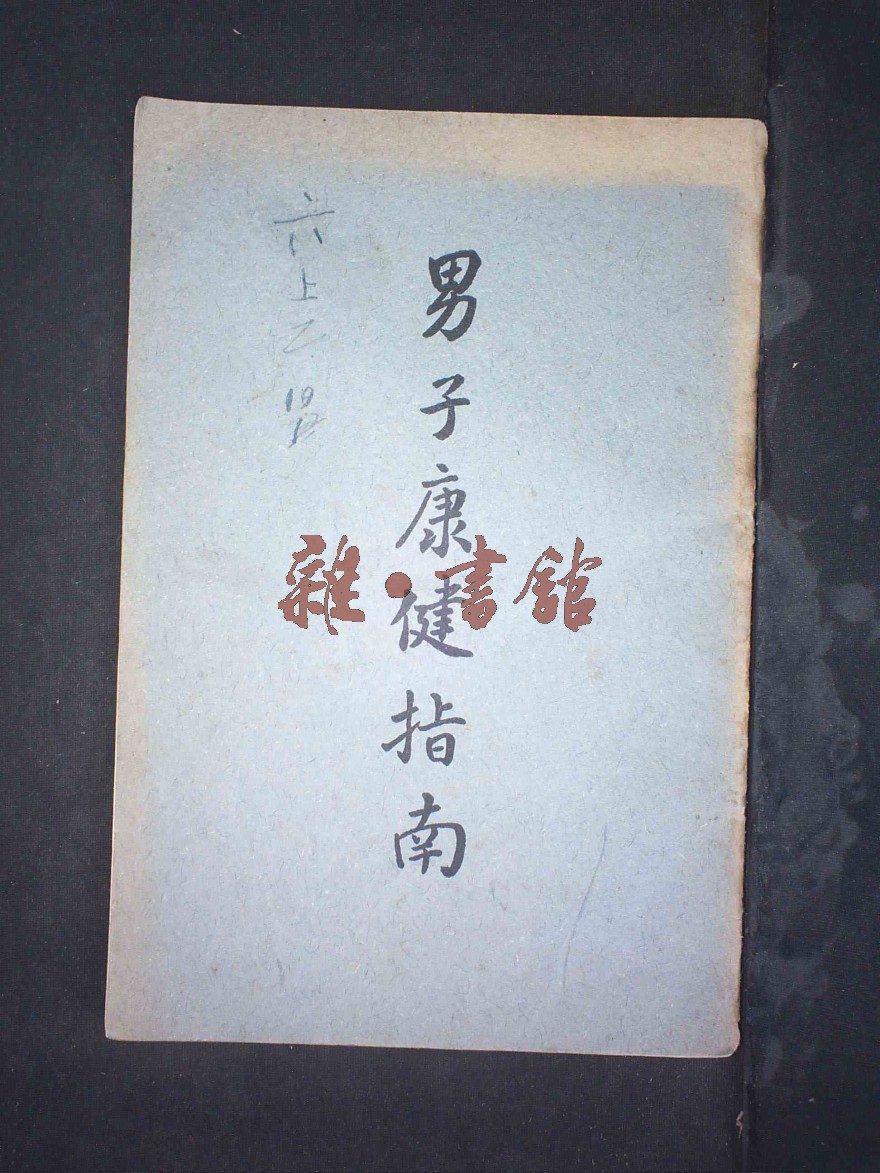 男子康健指南
六上乙
雜·書館